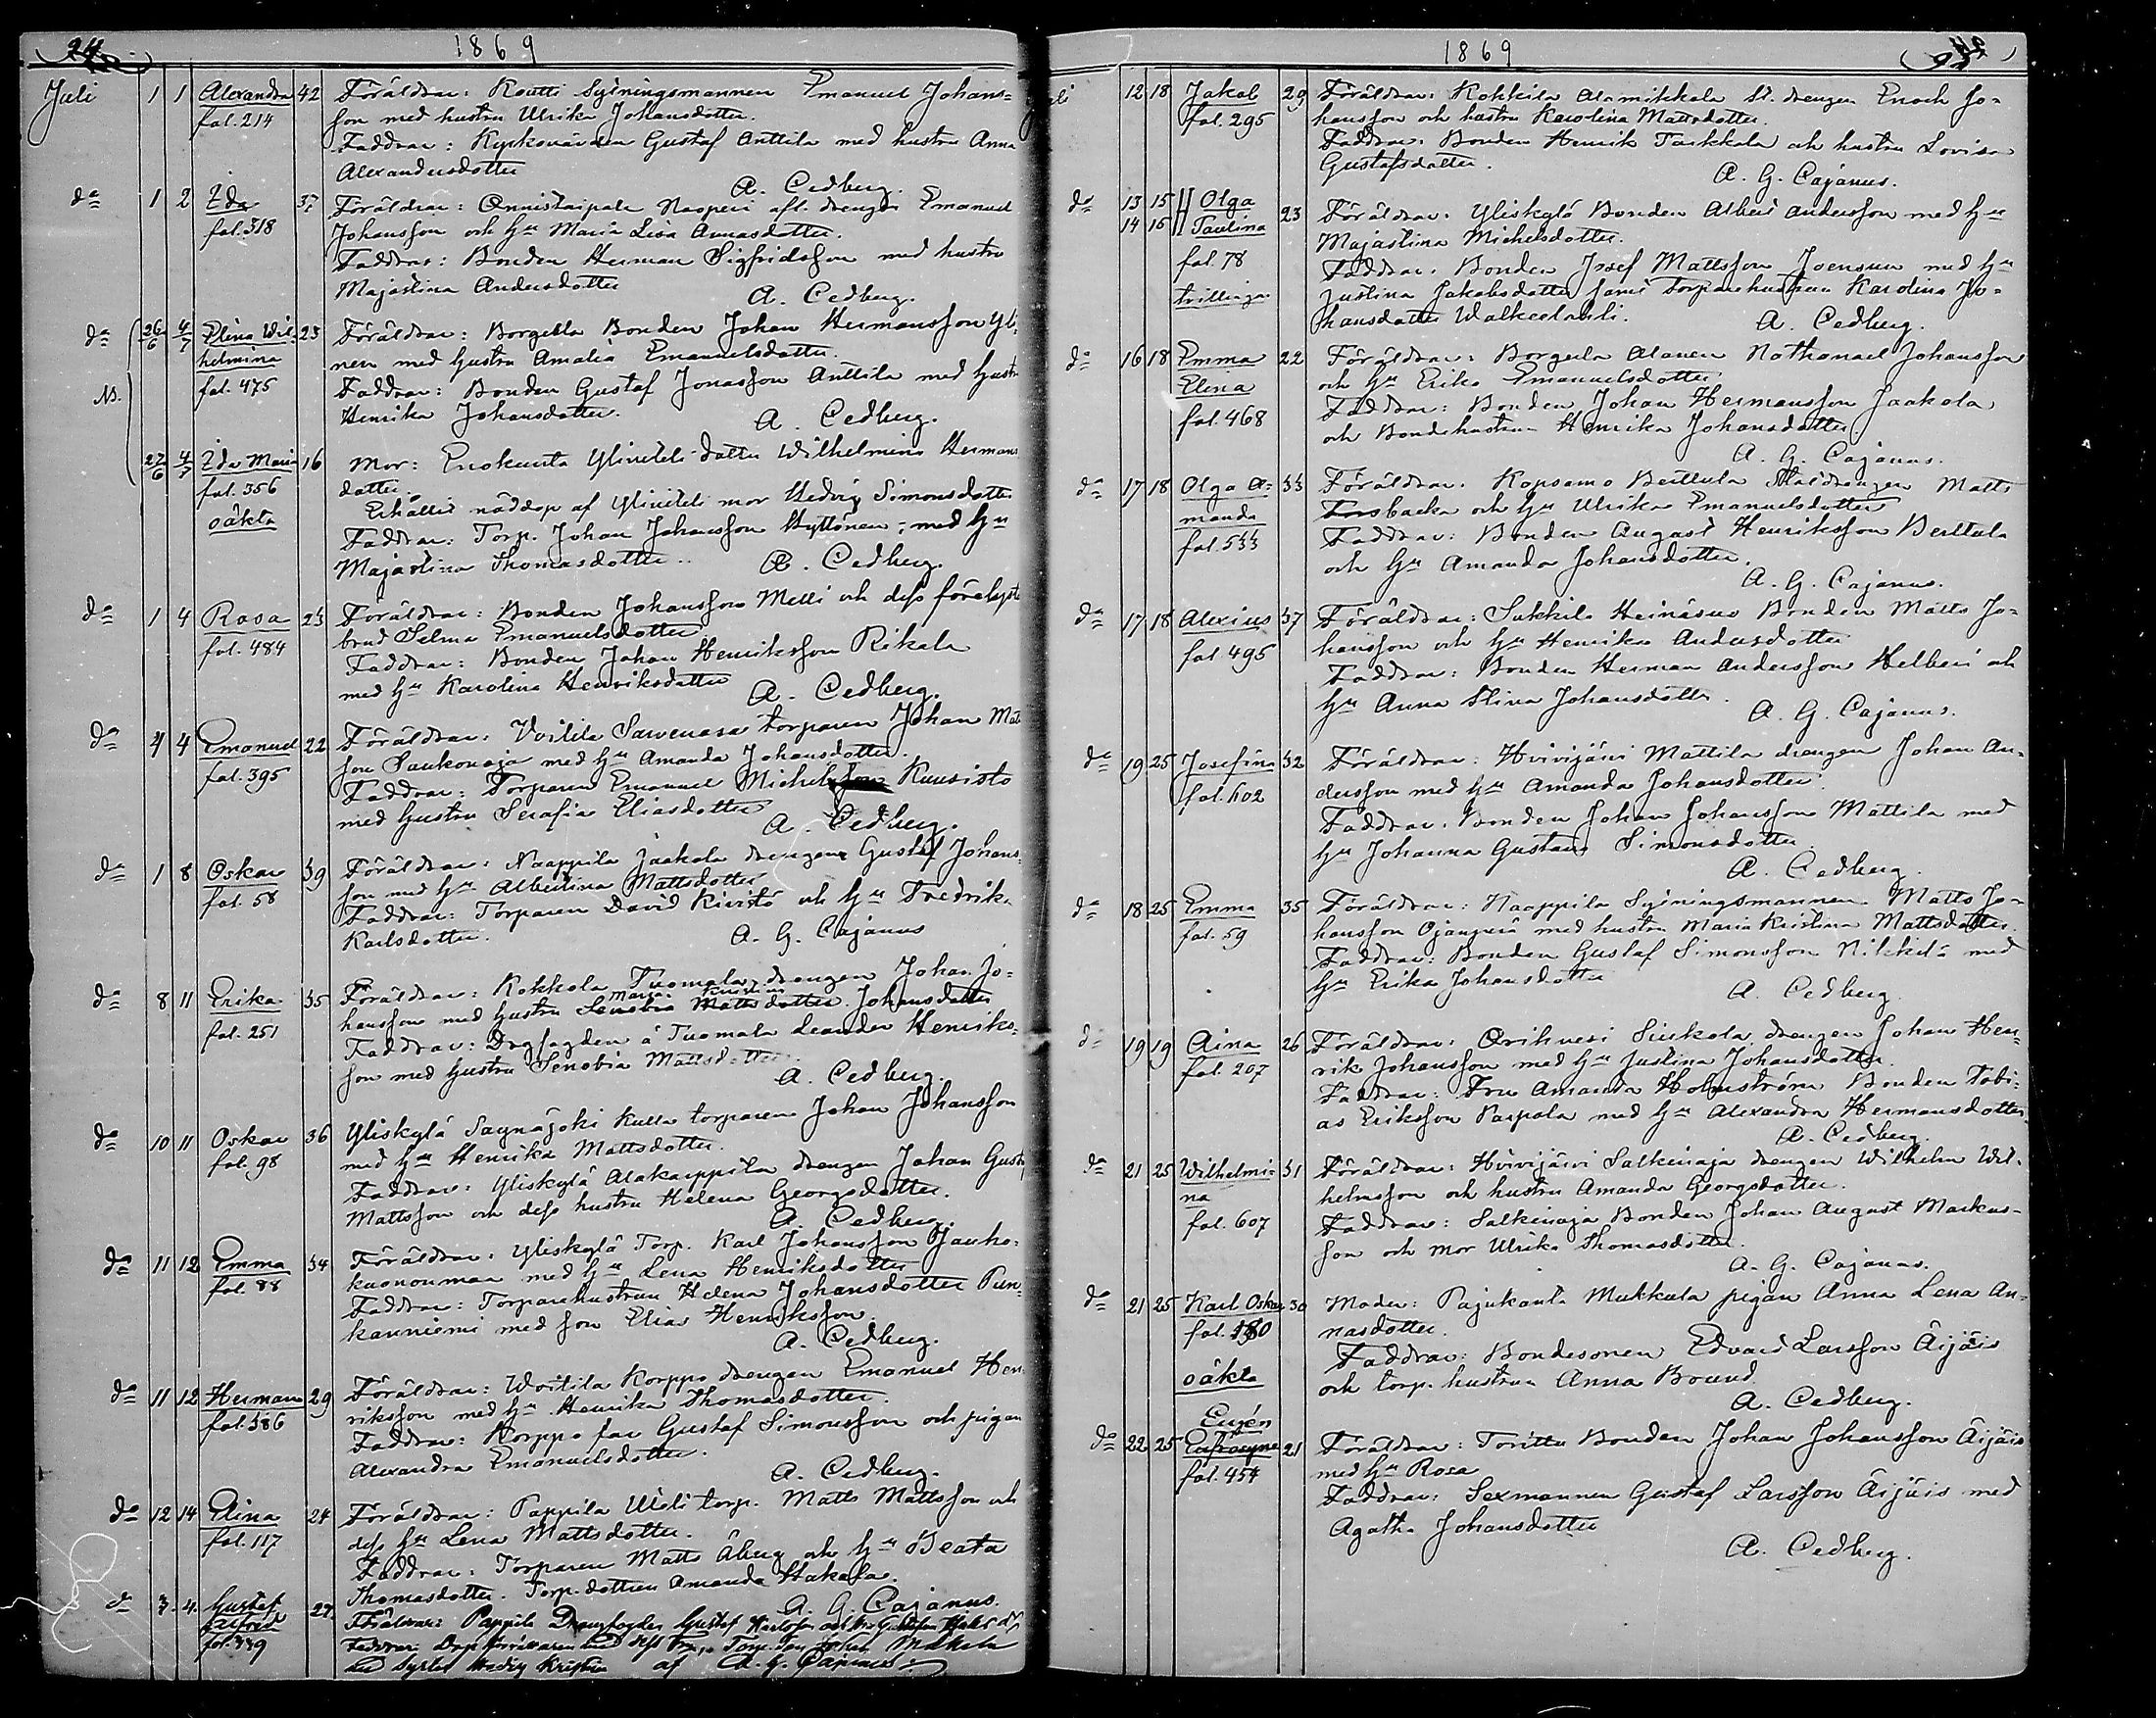 1869
Juli 1 1 Alexandra 42 Föräldrar: Routti Sytningsmannen Emanuel Johans=
fol. 214 son med hustru Ulrika Johansdotter.
Faddrar: Kyrkovärden Gustaf Anttila med hustru Anna
Alexandersdotter
A. Cedberg.
do 1 2 Ida 37 Föräldrar: Onnistaipale Kasperi afl. drengen Emanuel
fol. 318 Johansson och Hu Maria Lisa Annasdotter.
Faddrar: Bonden Herman Sigfridsson med hustru
Majastina Andersdotter
A. Cedberg.
do 26/6 4/7 Elina Wil= 23 Föräldrar: Borgella Bonden Johan Hermansson Yli=
helmina nen med hustru Amalia Emanuelsdotter.
fol. 475 Faddrar: Bonden Gustaf Jonasson Anttila med hustru
NB. Henrika Johansdotter.
A. Cedberg.
27/6 4/7 Ida Maria 16 Mor: Enokunta dotter Wilhelmina Hermans
fol. 356 dotter.
oäkta Erhållit nöddop af mor Hedvig Simonsdotter
Faddrar: Torp. Johan Johansson Hyttönen med Hu
Majastina Thomasdotter
A. Cedberg.
do 1 4 Rosa 25 Föräldrar: Bonden Johansson Melli och dess
fol. 484 brud Selma Emanuelsdotter
Faddrar: Bonden Johan Henriksson Rikala
med Hu Karolina Henriksdotter
A. Cedberg.
do 4 4 Emanuel 22 Föräldrar: Voitila Sarvenasa torparen Johan Mats
fol. 395 son Saukonoja med Hu Amanda Johansdotter.
Faddrar: Torparen Emanuel Michelsson Kuusisto
med hustru Serafia Eliasdotter
A. Cedberg.
do 1 8 Oskar 39 Föräldrar: Naappila Jaakola drengen Gustaf Johans=
fol. 58 son med Hu Albertina Mattsdotter
Faddrar: Torparen David Kivistö och Hu Fredrika
Karlsdotter.
A. G. Cajanus
do 8 11 Erika 35 Föräldrar: Kokkola Tuomala drengen Johan Jo=
Maria
fol. 251 hansson med hustru Senobia Mattsdotter Johansdotter
Faddrar: Dragfogden å Tuomala Leander Henriks=
son med hustru Senobia Mattsdotter
A. Cedberg.
do 10 11 Oskar 36 Yliskylä Saynäjoki Kulla torparen Johan Johansson
fol. 98 med Hu Henrika Mattsdotter.
Faddrar: Yliskylä Alakarppila drengen Johan Gustaf
Mattsson och dess hustru Helena Georgsdotter.
A. Cedberg.
do 11 12 Emma 34 Föräldrar: Yliskylä Torp. Karl Johansson Jauho=
fol. 88 kuononmaa med Hu Lena Henriksdotter
Faddrar: Torparehustrun Helena Johansdotter Pun=
kanniemi med son Elias Henriksson.
A. Cedberg.
do 11 12 Herman 29 Föräldrar: Voitila Korppo drengen Emanuel Hen
fol. 386 riksson med Hu Henrika Thomasdotter.
Faddrar: Korppo far Gustaf Simonsson och pigan
Alexandra Emanuelsdotter.
A. Cedberg.
do 12 14 Elina 24 Föräldrar: Pappila Uoti torp. Matts Mattsson och
fol. 117 dess Hu Lena Mattsdotter.
Faddrar: Torparen Matts Åberg och Hu Beata
Thomasdotter. Torp. dottren Amanda Hakala.
A. G. Cajanus.
do 3 4 Gustaf 27 Föräldrar: Pappila Gustaf Karlsson
Alfred Faddrar: Torp. son Johan Mäkelä
fol. 339 med syster Hedvig Kristina af A. G. Cajanus
1869
12 18 Jakob 29 Föräldrar: Kokkila Alamikkola St. drengen Enoch Jo=
fol. 295 hansson och hustru Karolina Mattsdotter.
Faddrar: Bonden Henrik Tarkkala och hustru Lovisa
Gustafsdotter.
A. G. Cajanus.
do 13 15 Olga
14 15 Paulina 23 Föräldrar: Yliskylä Bonden Albert Andersson med Hu
Majastina Michelsdotter.
fol. 78 Faddrar: Bonden Josef Mattsson Joensuu med Hu
trillingar Justina Jakobsdotter samt torparehustrun Karolina Jo=
hansdotter
A. Cedberg.
do 16 18 Emma 22 Föräldrar: Borgula Alanen Nathanael Johansson
Elena och Hu Erika Emanuelsdotter
fol. 468 Faddrar: Bonden Johan Hermansson Jaakola
och Bondehustrun Henrika Johansdotter
A. G. Cajanus.
do 17 18 Olga A= 33 Föräldrar: Kopsamo Berttula Stalldrengen Matts
manda Forsbacka och Hu Ulrika Emanuelsdotter
fol. 533 Faddrar: Bonden August Henriksson Berttula
och Hu Amanda Johansdotter.
A. G. Cajanus.
do 17 18 Alexius 37 Föräldrar: Sukkila Heinäsuo Bonden Matts Jo=
fol. 495 hansson och Hu Henrika Andersdotter
Faddrar: Bonden Herman Andersson Helberi och
Hu Anna Stina Johansdotter.
A. G. Cajanus.
do 19 25 Josefina 32 Föräldrar: Hvivijärvi Mattila drengen Johan An=
fol. 602 dersson med Hu Amanda Johansdotter.
Faddrar: Bonden Johan Johansson Mattila med
Hu Johanna Gustava Simonsdotter.
A. Cedberg.
do 18 25 Emma 35 Föräldrar: Naappila Sytningsmannen Matts Jo=
fol. 59 hansson Ojanperä med hustru Maria Kristina Mattsdotter.
Faddrar: Bonden Gustaf Simonsson Nikkilä med
Hu Erika Johansdotter
A. Cedberg
do 19 19 Aina 26 Föräldrar: Orihvesi Siukola drengen Johan Hen=
fol. 207 rik Johansson med Hu Justina Johansdotter.
Faddrar: Fru Amanda Holmström Bonden Tobi=
as Eriksson Parpola med Hu Alexandra Hermansdotter
A. Cedberg.
do 21 25 Wilhelmi= 31 Föräldrar: Hvivijärvi Salkinoja drengen Wilhelm Wil=
na helmsson och hustru Amanda Georgsdotter.
fol. 607 Faddrar: Salkinoja Bonden Johan August Markus=
son och mor Ulrika Thomasdotter.
A. G. Cajanus.
do 21 25 Karl Oskar 30 Moder: Pajukanta Mukkula pigan Anna Lena An=
fol. 180 nasdotter.
oäkta Faddrar: Bondesonen Edvard Larsson Äijäis
och torp. hustrun Anna Brund.
A. Cedberg.
Eugen
do 22 25 Eufrosyne 21 Föräldrar: Toritta Bonden Johan Johansson Äijäis
fol. 454 med Hu Rosa
Faddrar: Sexmannen Gustaf Larsson Äijäis med
Agatha Johansdotter
A. Cedberg.